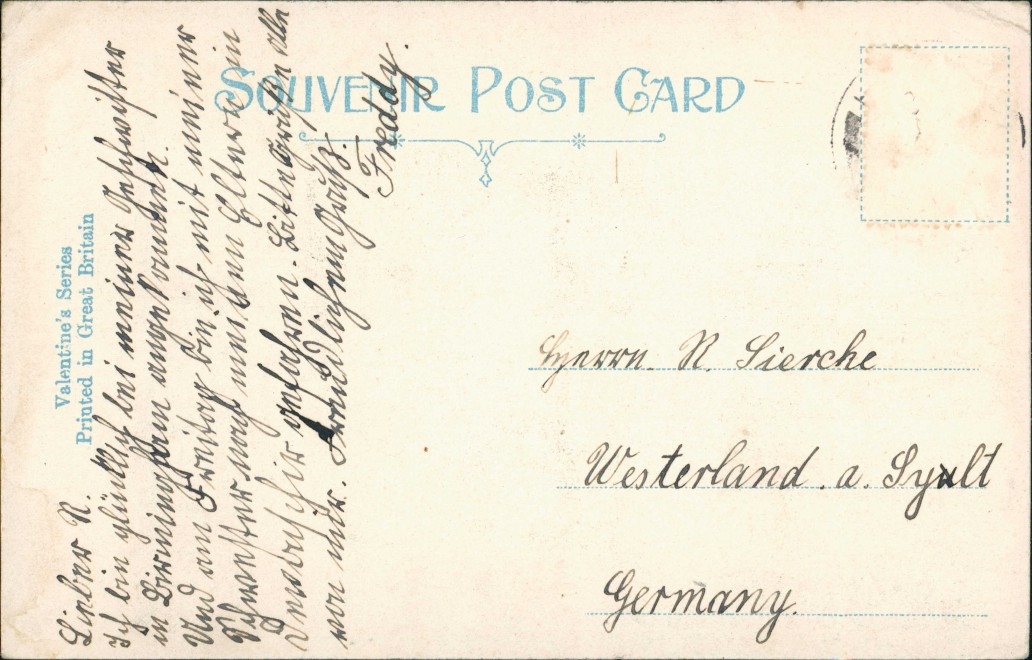 SOUVENIR POST CARD
Valentine's Series
Printed in Great Britain
Lieber R.
Ich bin glücklich bei meiner Geschwister
in Birmingham angekommen.
Und am Freitag bin ich mit meiner
Schwester nach meinen Eltern in
gefahren. Bitte Grüßen alle
von mir. Freundlichem Gruß.
Freddy.
Herrn R. Sierche
Westerland a. Syult
Germany.